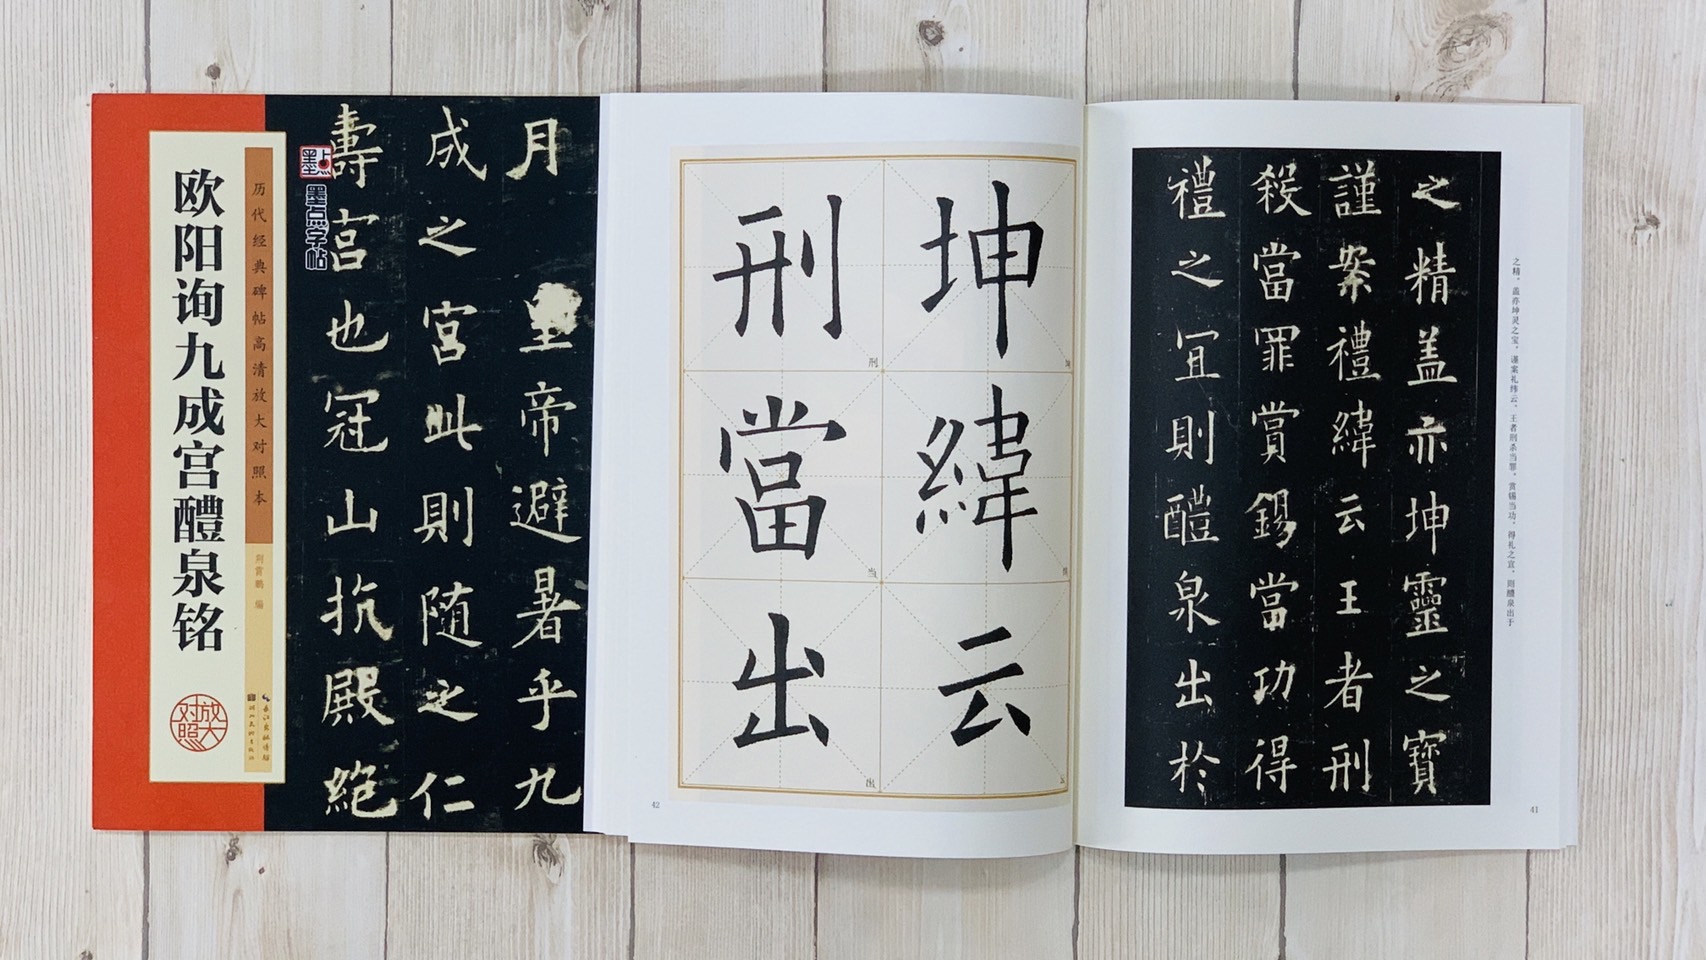 欧阳询九成宫醴泉铭
放大对照
历代经典碑帖高清放大对照本
荆霄鹏 编
长江出版传媒
湖北美术出版社
墨点
墨点字帖
月皇帝避暑乎九
成之宫此則随之仁
壽宫也冠山抗殿絶
坤緯云
刑當出
刑
当
出
42
之精盖亦坤靈之寶
謹案禮緯云王者刑
殺當罪賞錫當功得
禮之冝則醴泉出於
之精，盖亦坤灵之宝，谨案礼纬云，王者刑杀当罪，赏锡当功，得礼之宜，则醴泉出于
41